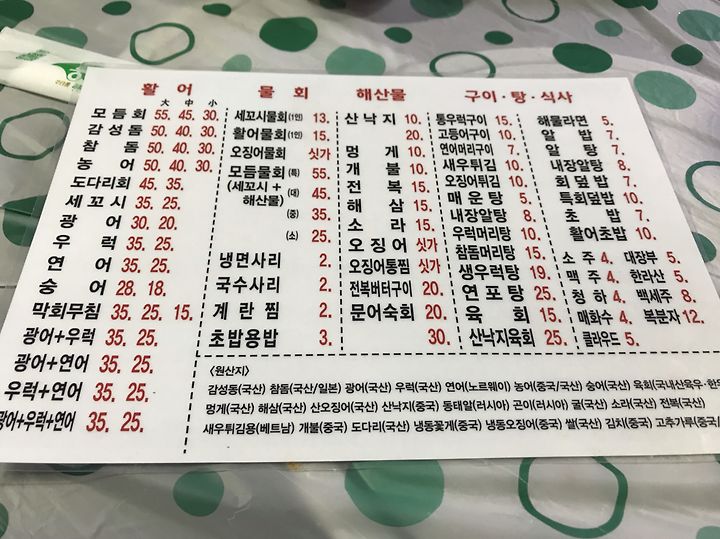 활 어
大 中 小
모듬회 55. 45. 30.
감성돔 50. 40. 30.
참 돔 50. 40. 30.
농 어 50. 40. 30.
도다리회 45. 35.
세꼬시 35. 25.
광 어 30. 20.
우 럭 35. 25.
연 어 35. 25.
숭 어 28. 18.
막회무침 35. 25. 15.
광어+우럭 35. 25.
광어+연어 35. 25.
우럭+연어 35. 25.
광어+우럭+연어 35. 25.
물 회
세꼬시물회(1인) 13.
활어물회(1인) 15.
오징어물회 싯가
모듬물회 (특) 55.
(세꼬시+ (대) 45.
해산물)
(중) 35.
(소) 25.
냉면사리 2.
국수사리 2.
계란찜 2.
초밥용밥 3.
해산물
산낙지 10.
20.
멍 게 10.
개 불 10.
전 복 15.
해 삼 15.
소 라 15.
오징어 싯가
오징어통찜 싯가
전복버터구이 20.
문어숙회 20.
30.
구이·탕·식사
통우럭구이 15.
고등어구이 10.
연어머리구이 7.
새우튀김 10.
오징어튀김 10.
매운탕 5.
내장알탕 8.
우럭머리탕 10.
참돔머리탕 15.
생우럭탕 19.
연포탕 25.
육 회 15.
산낙지육회 25.
해물라면 5.
알 밥 7.
알 탕 7.
내장알탕 8.
회덮밥 7.
특회덮밥 10.
초 밥 7.
활어초밥 10.
소 주 4. 대장부 5.
맥 주 4. 한라산 5.
청 하 4. 백세주 8.
매화수 4. 복분자 12.
클라우드 5.
〈원산지〉
감성돔(국산) 참돔(국산/일본) 광어(국산) 우럭(국산) 연어(노르웨이) 농어(중국/국산) 숭어(국산) 육회(국내산육우·한우
멍게(국산) 해삼(국산) 산오징어(국산) 산낙지(중국) 동태알(러시아) 곤이(러시아) 굴(국산) 소라(국산) 전복(국산)
새우튀김용(베트남) 개불(중국) 도다리(국산) 냉동꽃게(중국) 냉동오징어(중국) 쌀(국산) 김치(중국) 고추가루(중국/